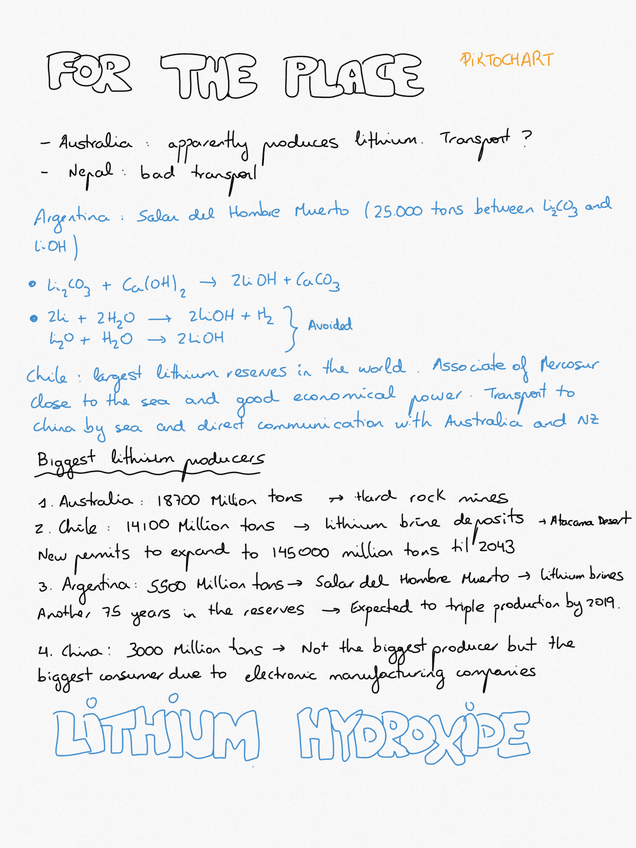 FOR THE PLACE
PiKTOCHART
- Australia : apparently produces lithium. Transport ?
- Nepal : bad transport
Argentina : Salar del Hombre Muerto (25.000 tons between Li₂CO₃ and
LiOH)
• Li₂CO₃ + Ca(OH)₂ → 2LiOH + CaCO₃
• 2Li + 2H₂O → 2LiOH + H₂ } Avoided
Li₂O + H₂O → 2LiOH
Chile : largest lithium reserves in the world. Associate of Mercosur
close to the sea and good economical power. Transport to
China by sea and direct communication with Australia and NZ
Biggest lithium producers
1. Australia : 18700 Million tons → Hard rock mines
2. Chile : 14100 Million tons → lithium brine deposits → Atacama Desert
New permits to expand to 145000 million tons til 2043
3. Argentina : 5500 Million tons → Salar del Hombre Muerto → Lithium brines
Another 75 years in the reserves → Expected to triple production by 2019.
4. China : 3000 Million tons → Not the biggest producer but the
biggest consumer due to electronic manufacturing companies
LiTHiUM HYDROXiDE